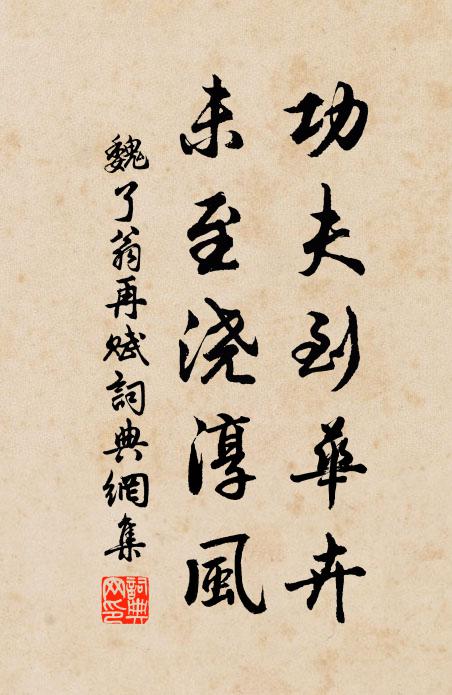 功夫到華卉
未至浇淳風
魏了翁再赋詞典網集
詞典网印